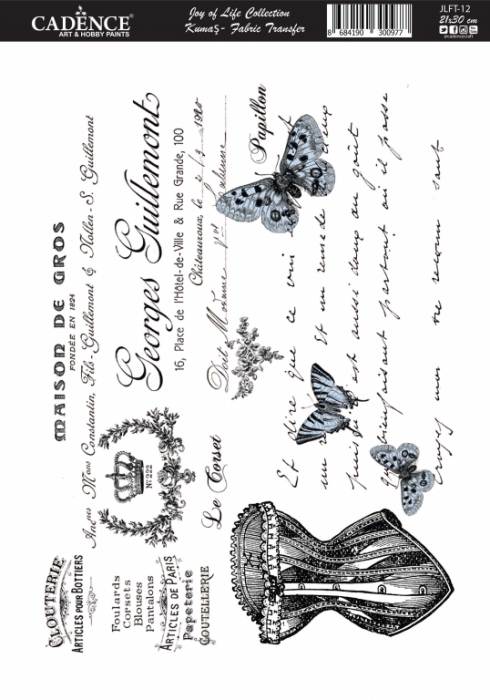 CADENCE
ART & HOBBY PAINTS
Joy of Life Collection
Kumaş- Fabric Transfer
8 684190 300977
JLFT-12
21x30 cm
@cadencecraft
MAISON DE GROS
FONDÉE EN 1824
Ancnes Mons Constantin, Fils-Guillemont & Nollen-S. Guillemont
Georges Guillemont
16, Place de l'Hôtel-de-Ville & Rue Grande, 100
Châteauroux, le 2/9 1920
Doit
Papillon
Nº 222
Le Corset
CLOUTERIE
ARTICLES POUR BOTTIERS
Foulards
Corsets
Blouses
Pantalons
ARTICLES DE PARIS
Papeterie
COUTELLERIE
Et dire que ce
un Et un remede
est aussi doux au goût
partout où il passe